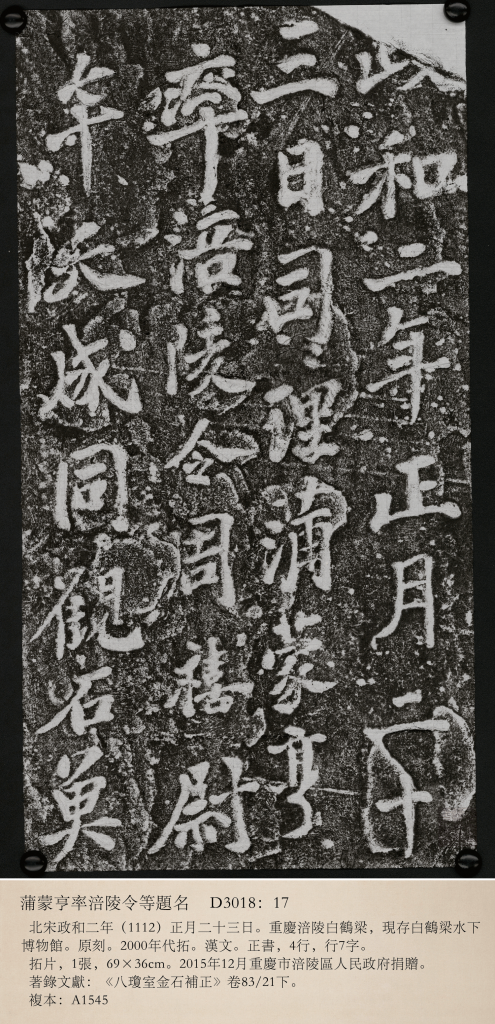 政和二年正月二十
三日司理蒲蒙亨
率涪陵令周禧尉
牟成同觀石魚
蒲蒙亨率涪陵令等題名　D3018：17
北宋政和二年（1112）正月二十三日。重慶涪陵白鶴梁，現存白鶴梁水下
博物館。原刻。2000年代拓。漢文。正書，4行，行7字。
拓片，1張，69×36cm。2015年12月重慶市涪陵區人民政府捐贈。
著錄文獻：《八瓊室金石補正》卷83/21下。
複本：A1545